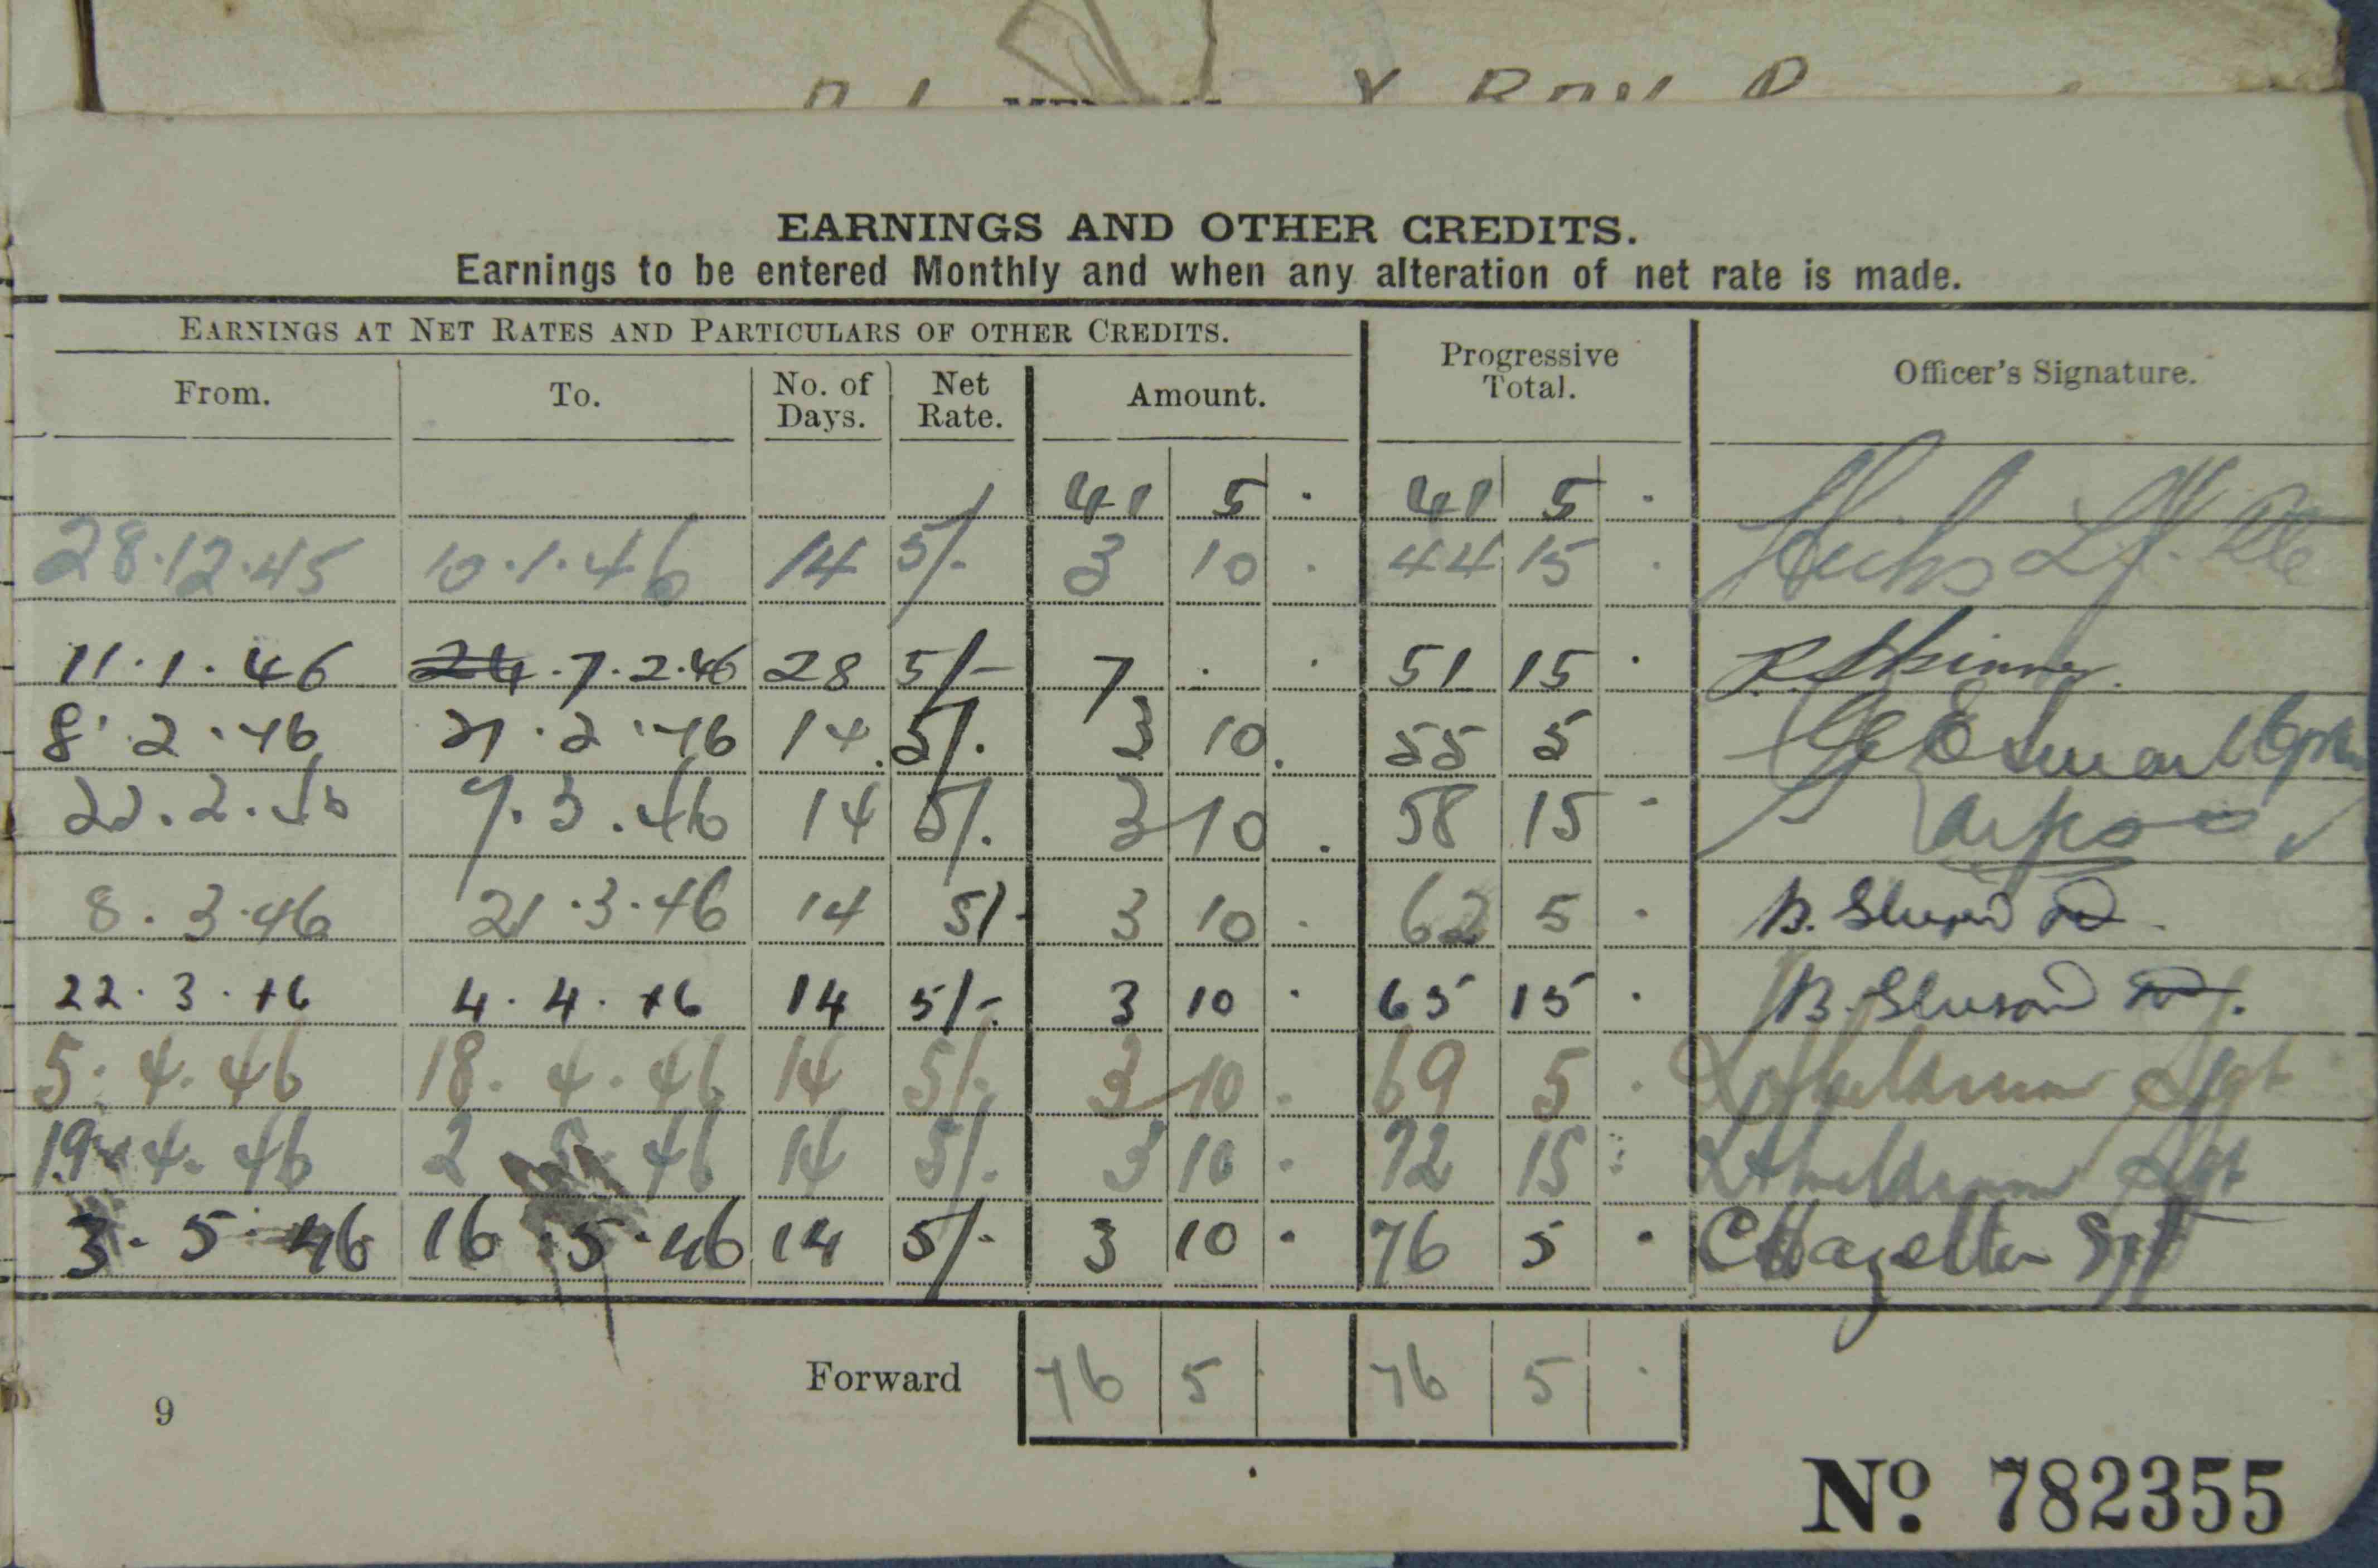 EARNINGS AND OTHER CREDITS.
Earnings to be entered Monthly and when any alteration of net rate is made.
EARNINGS AT NET RATES AND PARTICULARS OF OTHER CREDITS. Progressive Total. Officer's Signature.
From. To. No. of Days. Net Rate. Amount.
41 5 · 41 5 ·
28.12.45 10.1.46 14 5/- 3 10 · 44 15 ·
11.1.46 24.7.2.46 28 5/- 7 · · 51 15 ·
8.2.46 21.2.46 14 5/- 3 10 . 55 5
22.2.46 7.3.46 14 5/- 3 10 . 58 15 -
8.3.46 21.3.46 14 5/- 3 10 · 62 5 · B.
22.3.46 4.4.46 14 5/- 3 10 · 65 15 · B.
5.4.46 18.4.46 14 5/- 3 10 · 69 5 · Sgt
19.4.46 2 5 46 14 5/- 3 10 · 72 15 : Sgt
3.5.46 16.5.46 14 5/- 3 10 · 76 5 · Sgt
Forward 76 5 · 76 5 ·
9
No. 782355